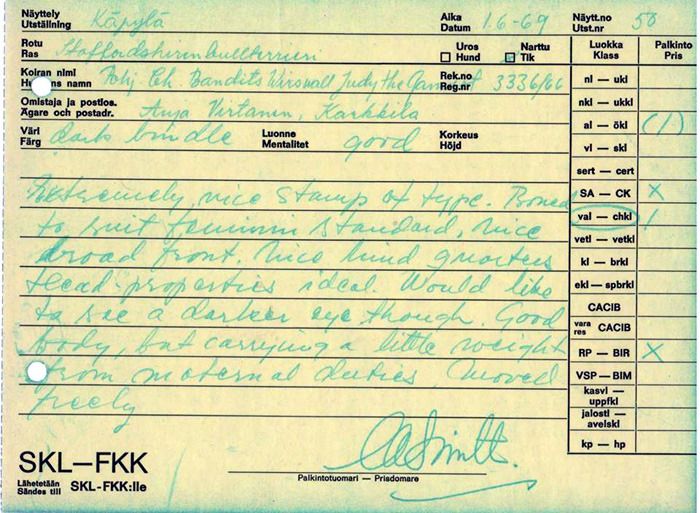 Näyttely
Utställning Käpylä Aika
Datum 1.6-69 Näytt.no
Utst.nr 58
Rotu
Ras Staffordshirenbullterrieri Uros
Hund Narttu
Tik Luokka
Klass Palkinto
Pris
Koiran nimi
Hundens namn Pohj. Ch. Bandits Virswall Judy the Rek.no
Reg.nr 3336/66
Omistaja ja postios.
Ägare och postadr. Anja Virtanen, Karkkila
Väri
Färg dark brindle Luonne
Mentalitet good Korkeus
Höjd
Extremely nice stamp of type. Boned
to suit feminin standard, nice
broad front. Nice hind quarters
Head-properties ideal. Would like
to see a darker eye though. Good
body, but carrying a little weight
from maternal duties. Moved
freely
nl — ukl
nkl — ukkl
al — ökl (1)
vl — skl
sert — cert
SA — CK X
val — chkl 1
vetl — vetkl
kl — brkl
ekl — spbrkl
CACIB
vara
res CACIB
RP — BIR X
VSP — BIM
kasvl —
uppfkl
jalostl —
avelskl
kp — hp
SKL–FKK
Lähetetään
Sändes till SKL-FKK:lle
Palkintotuomari — Prisdomare